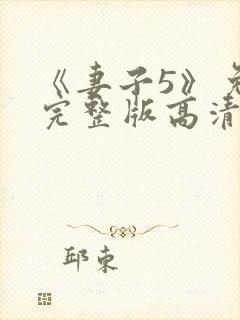 《妻子5》免
完整版高清
邱束